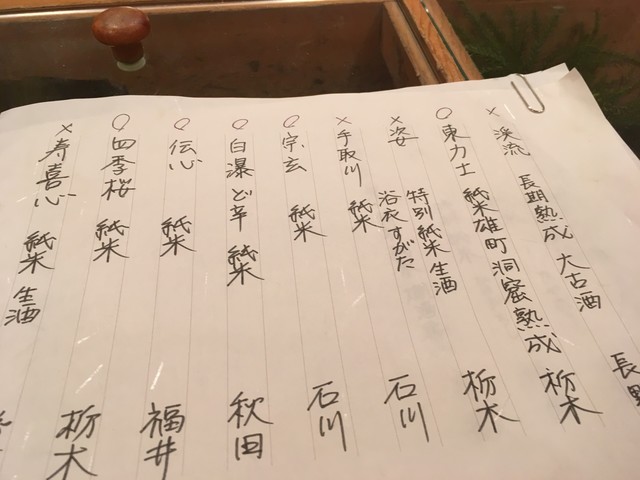 × 渓流 長期熟成 大古酒 長野
○ 東力士 純米雄町 洞窟熟成 栃木
× 姿 特別純米 生酒 栃木
浴衣すがた
× 手取川 純米 石川
○ 宗玄 純米 石川
○ 白瀑 ど辛 純米 秋田
○ 伝心 純米 福井
○ 四季桜 純米 栃木
× 寿喜心 純米 生酒